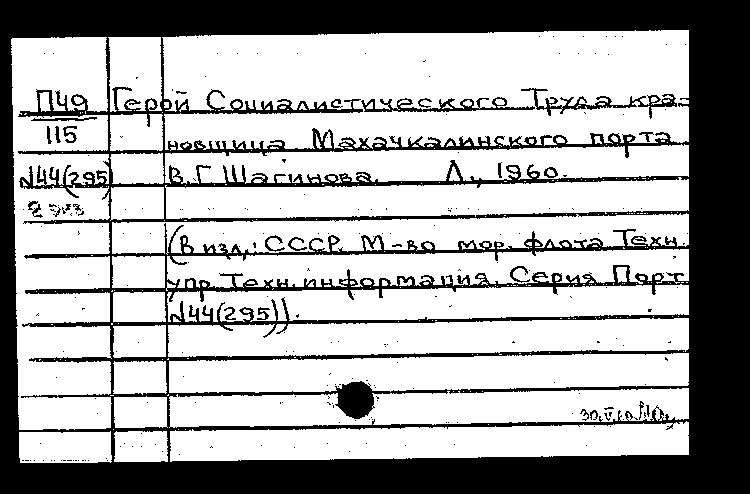 П49 Герой Социалистического Труда кра-
115 новщица Махачкалинского порта
№44(295) В.Г. Шагинова. Л., 1960.
2 экз
(В изд.: СССР. М-во мор. флота Техн.
упр. Техн. информация. Серия Порт
№44(295)).
30.V.60